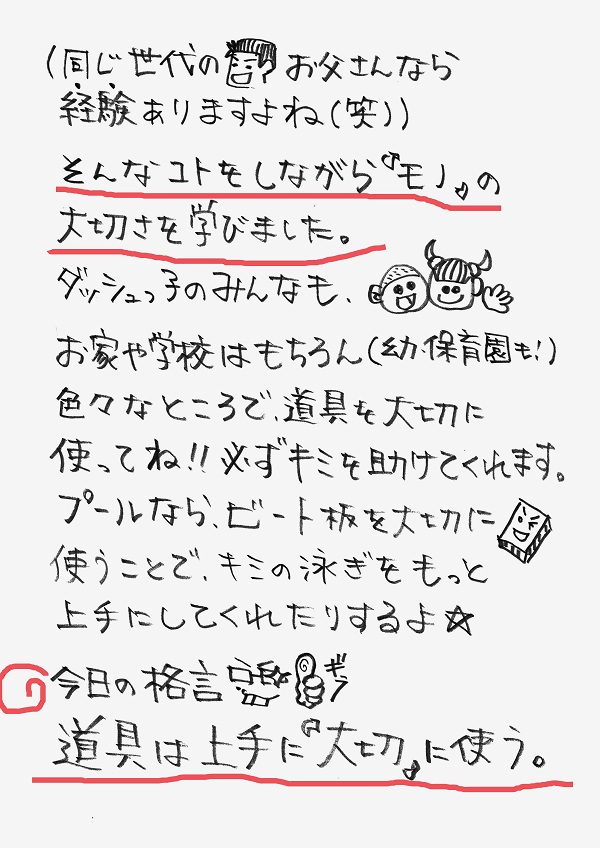 (同じ世代のお父さんなら
経験ありますよね(笑))
そんなコトをしながら『モノ』の
大切さを学びました。
ダッシュっ子のみんなも、
お家や学校はもちろん(幼・保育園も!)
色々なところで、道具を大切に
使ってね!!必ずキミを助けてくれます。
プールなら、ビート板を大切に
使うことで、キミの泳ぎをもっと
上手にしてくれたりするよ☆
今日の格言 ギラ
道具は上手に『大切』に使う。